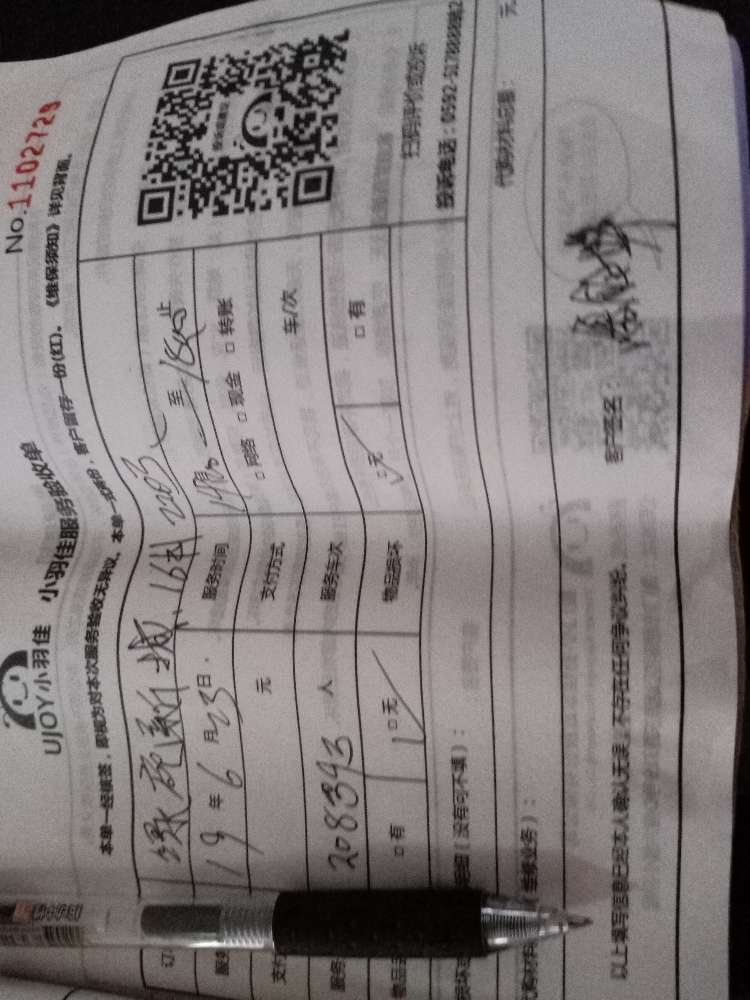 No.1102729
UJOY小羽佳 小羽佳服务验收单
本单一经核签，即视为对本次服务验收无异议。本单一式两份，客户留存一份(红)，《维保须知》详见背面。
绿苑新城 16# 2203
19年6月23日 服务时间 至 止
元 支付方式 □网络 □现金 □转账
208393 人 服务车次 车/次
□有 □无 物品损坏 □无 □有
扫码评价或投诉
投诉电话：0592-5178888转2
明细（没有可不填）：
代购材料总额： 元
维修业务）：
以上填写信息已经本人确认无误，不存在任何争议纠纷。
客户签名：